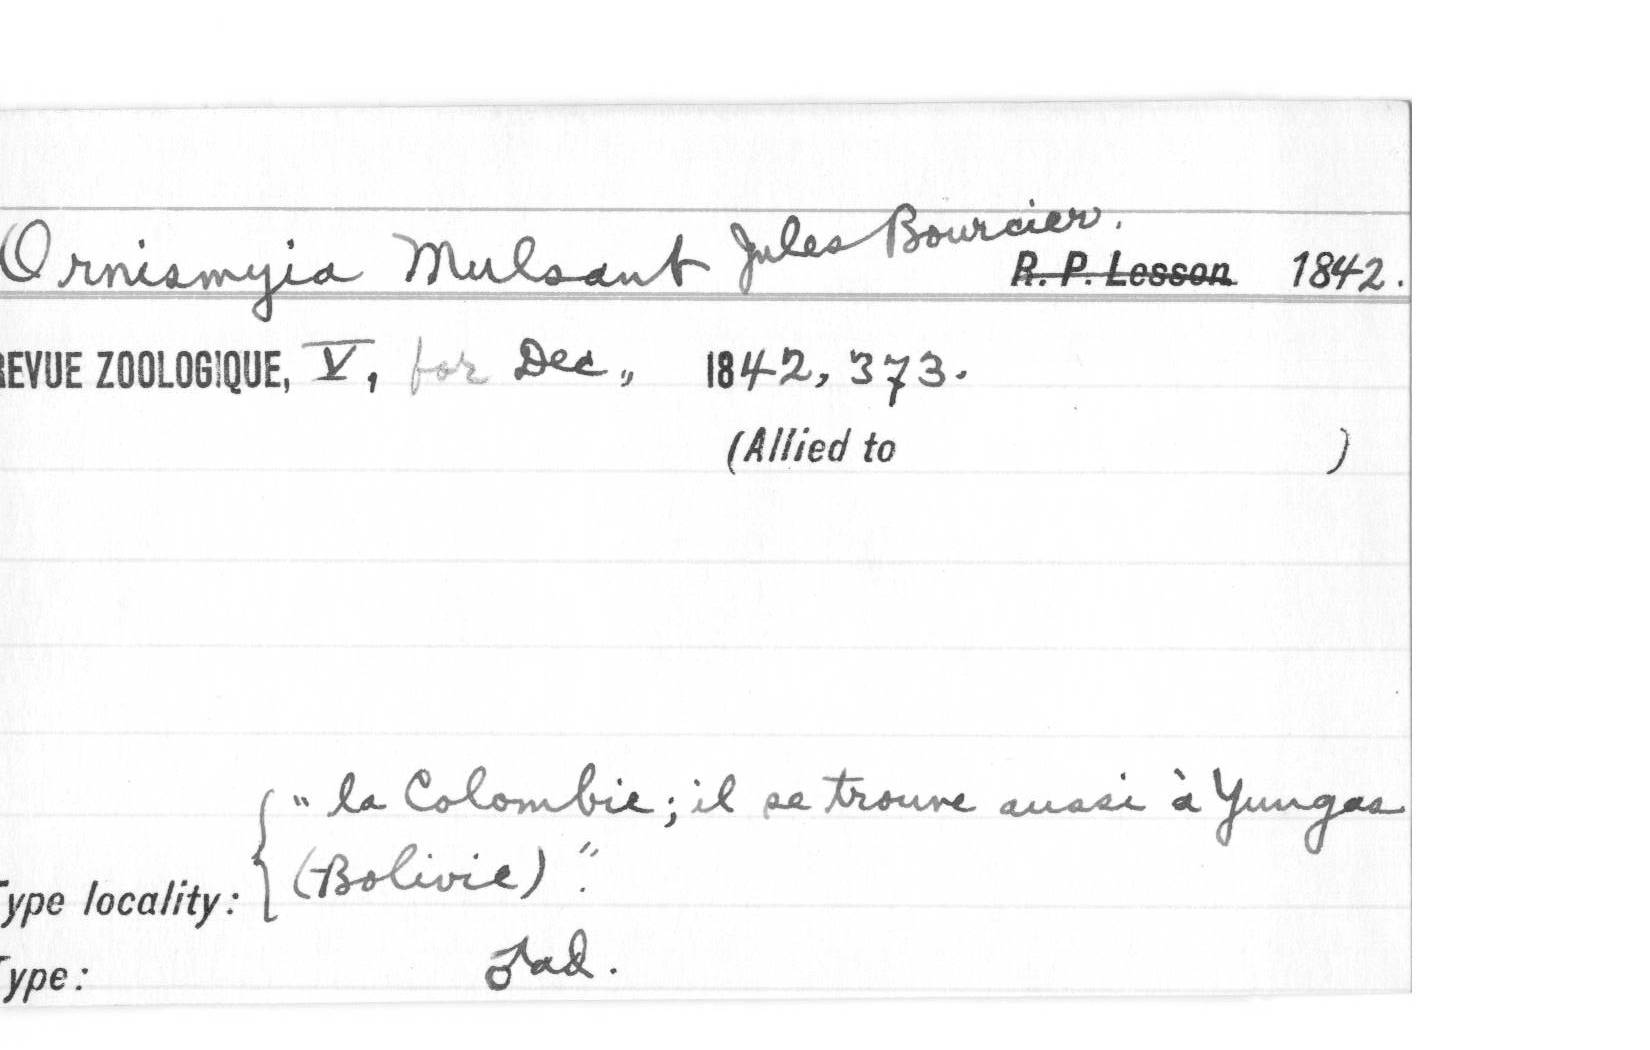 Ornismyia Mulsant Jules Bourcier.
R. P. Lesson 1842.
REVUE ZOOLOGIQUE, V, for Dec., 1842, 373.
(Allied to )
"la Colombie; il se trouve aussi à Yungas
(Bolivie)".
Type locality:
Type: ♂ad.